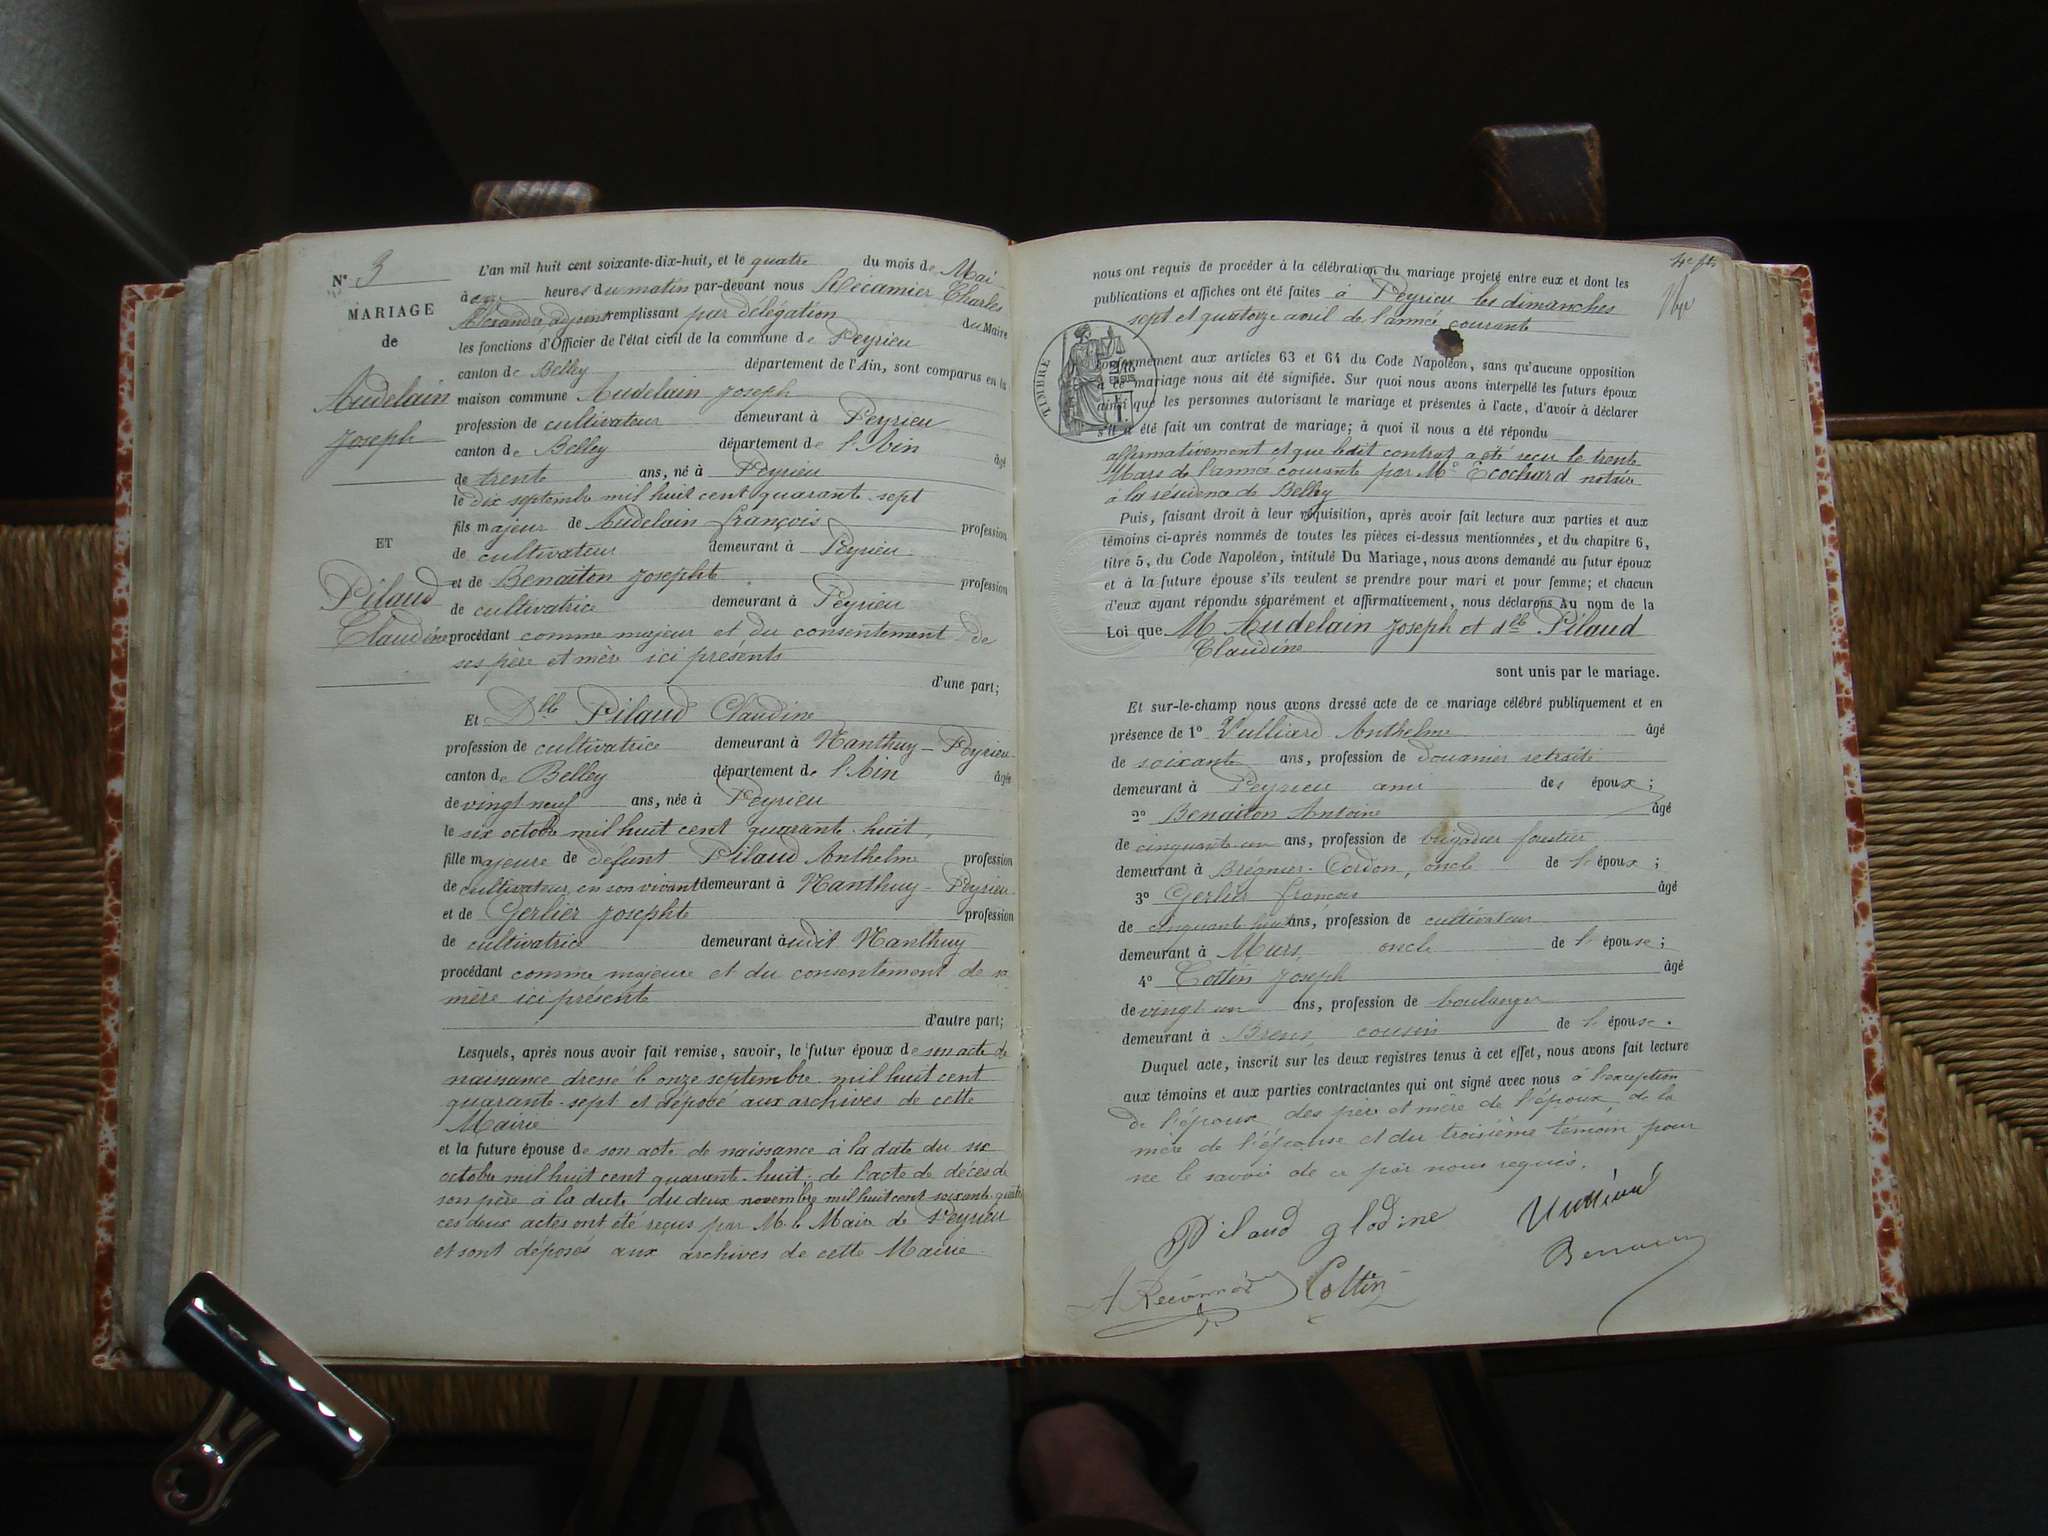 N° 3
MARIAGE
de
Audelain
Joseph
ET
Pilaud
Claudine
L'an mil huit cent soixante-dix-huit, et le quatre du mois de Mai
à onze heures du matin par-devant nous Récamier Charles
Alexandre adjoint remplissant par délégation du Maire
les fonctions d'Officier de l'état civil de la commune de Peyrieu
canton de Belley département de l'Ain, sont comparus en la
maison commune Audelain Joseph
profession de cultivateur demeurant à Peyrieu
canton de Belley département de l'Ain âgé
de trente ans, né à Peyrieu
le dix septembre mil huit cent quarante-sept
fils majeur de Audelain françois profession
de cultivateur demeurant à Peyrieu
et de Benaiton Josephte profession
de cultivatrice demeurant à Peyrieu
procédant comme majeur et du consentement de
ses père et mère ici présents
d'une part;
Et Dlle Pilaud Claudine
profession de cultivatrice demeurant à Nanthuy-Peyrieu
canton de Belley département de l'Ain âgée
de vingt neuf ans, née à Peyrieu
le six octobre mil huit cent quarante-huit,
fille majeure de défunt Pilaud Anthelme profession
de cultivateur, en son vivant demeurant à Nanthuy-Peyrieu
et de Gerlier Josephte profession
de cultivatrice demeurant à udit Nanthuy
procédant comme majeure et du consentement de sa
mère ici présente
d'autre part;
Lesquels, après nous avoir fait remise, savoir, le futur époux de son acte de
naissance dressé le onze septembre mil huit cent
quarante-sept et déposé aux archives de cette
Mairie
et la future épouse de son acte de naissance à la date du six
octobre mil huit cent quarante-huit; de l'acte de décès de
son père à la date du deux novembre mil huit cent soixante-quatre
ces deux actes ont été reçus par M. le Maire de Peyrieu
et sont déposés aux archives de cette Mairie
nous ont requis de procéder à la célébration du mariage projeté entre eux et dont les
publications et affiches ont été faites à Peyrieu les dimanches
sept et quatorze avril de l'année courante
TIMBRE
conformément aux articles 63 et 64 du Code Napoléon, sans qu'aucune opposition
à ce mariage nous ait été signifiée. Sur quoi nous avons interpellé les futurs époux
ainsi que les personnes autorisant le mariage et présentes à l'acte, d'avoir à déclarer
s'il a été fait un contrat de mariage; à quoi il nous a été répondu
affirmativement et que ledit contrat a été reçu le trente
Mars de l'année courante par Me Ecochard notaire
à la résidence de Belley
Puis, faisant droit à leur réquisition, après avoir fait lecture aux parties et aux
témoins ci-après nommés de toutes les pièces ci-dessus mentionnées, et du chapitre 6,
titre 5, du Code Napoléon, intitulé Du Mariage, nous avons demandé au futur époux
et à la future épouse s'ils veulent se prendre pour mari et pour femme; et chacun
d'eux ayant répondu séparément et affirmativement, nous déclarons Au nom de la
Loi que M. Audelain Joseph et dlle Pilaud
Claudine
sont unis par le mariage.
Et sur-le-champ nous avons dressé acte de ce mariage célébré publiquement et en
présence de 1° Vulliard Anthelme âgé
de soixante ans, profession de douanier retraité
demeurant à Peyrieu ami des époux;
2° Benaiton Antoine âgé
de cinquante un ans, profession de brigadier forestier
demeurant à Brégnier-Cordon, oncle de l'époux;
3° Gerlier françois âgé
de cinquante huit ans, profession de cultivateur
demeurant à Murs, oncle de l'épouse;
4° Cottin Joseph âgé
de vingt un ans, profession de boulanger
demeurant à Brens, cousin de l'épouse.
Duquel acte, inscrit sur les deux registres tenus à cet effet, nous avons fait lecture
aux témoins et aux parties contractantes qui ont signé avec nous à l'exception
de l'époux des père et mère de l'époux de la
mère de l'épouse et du troisième témoin pour
ne le savoir de ce par nous requis.
Pilaud glodine
A Récamier Cottin